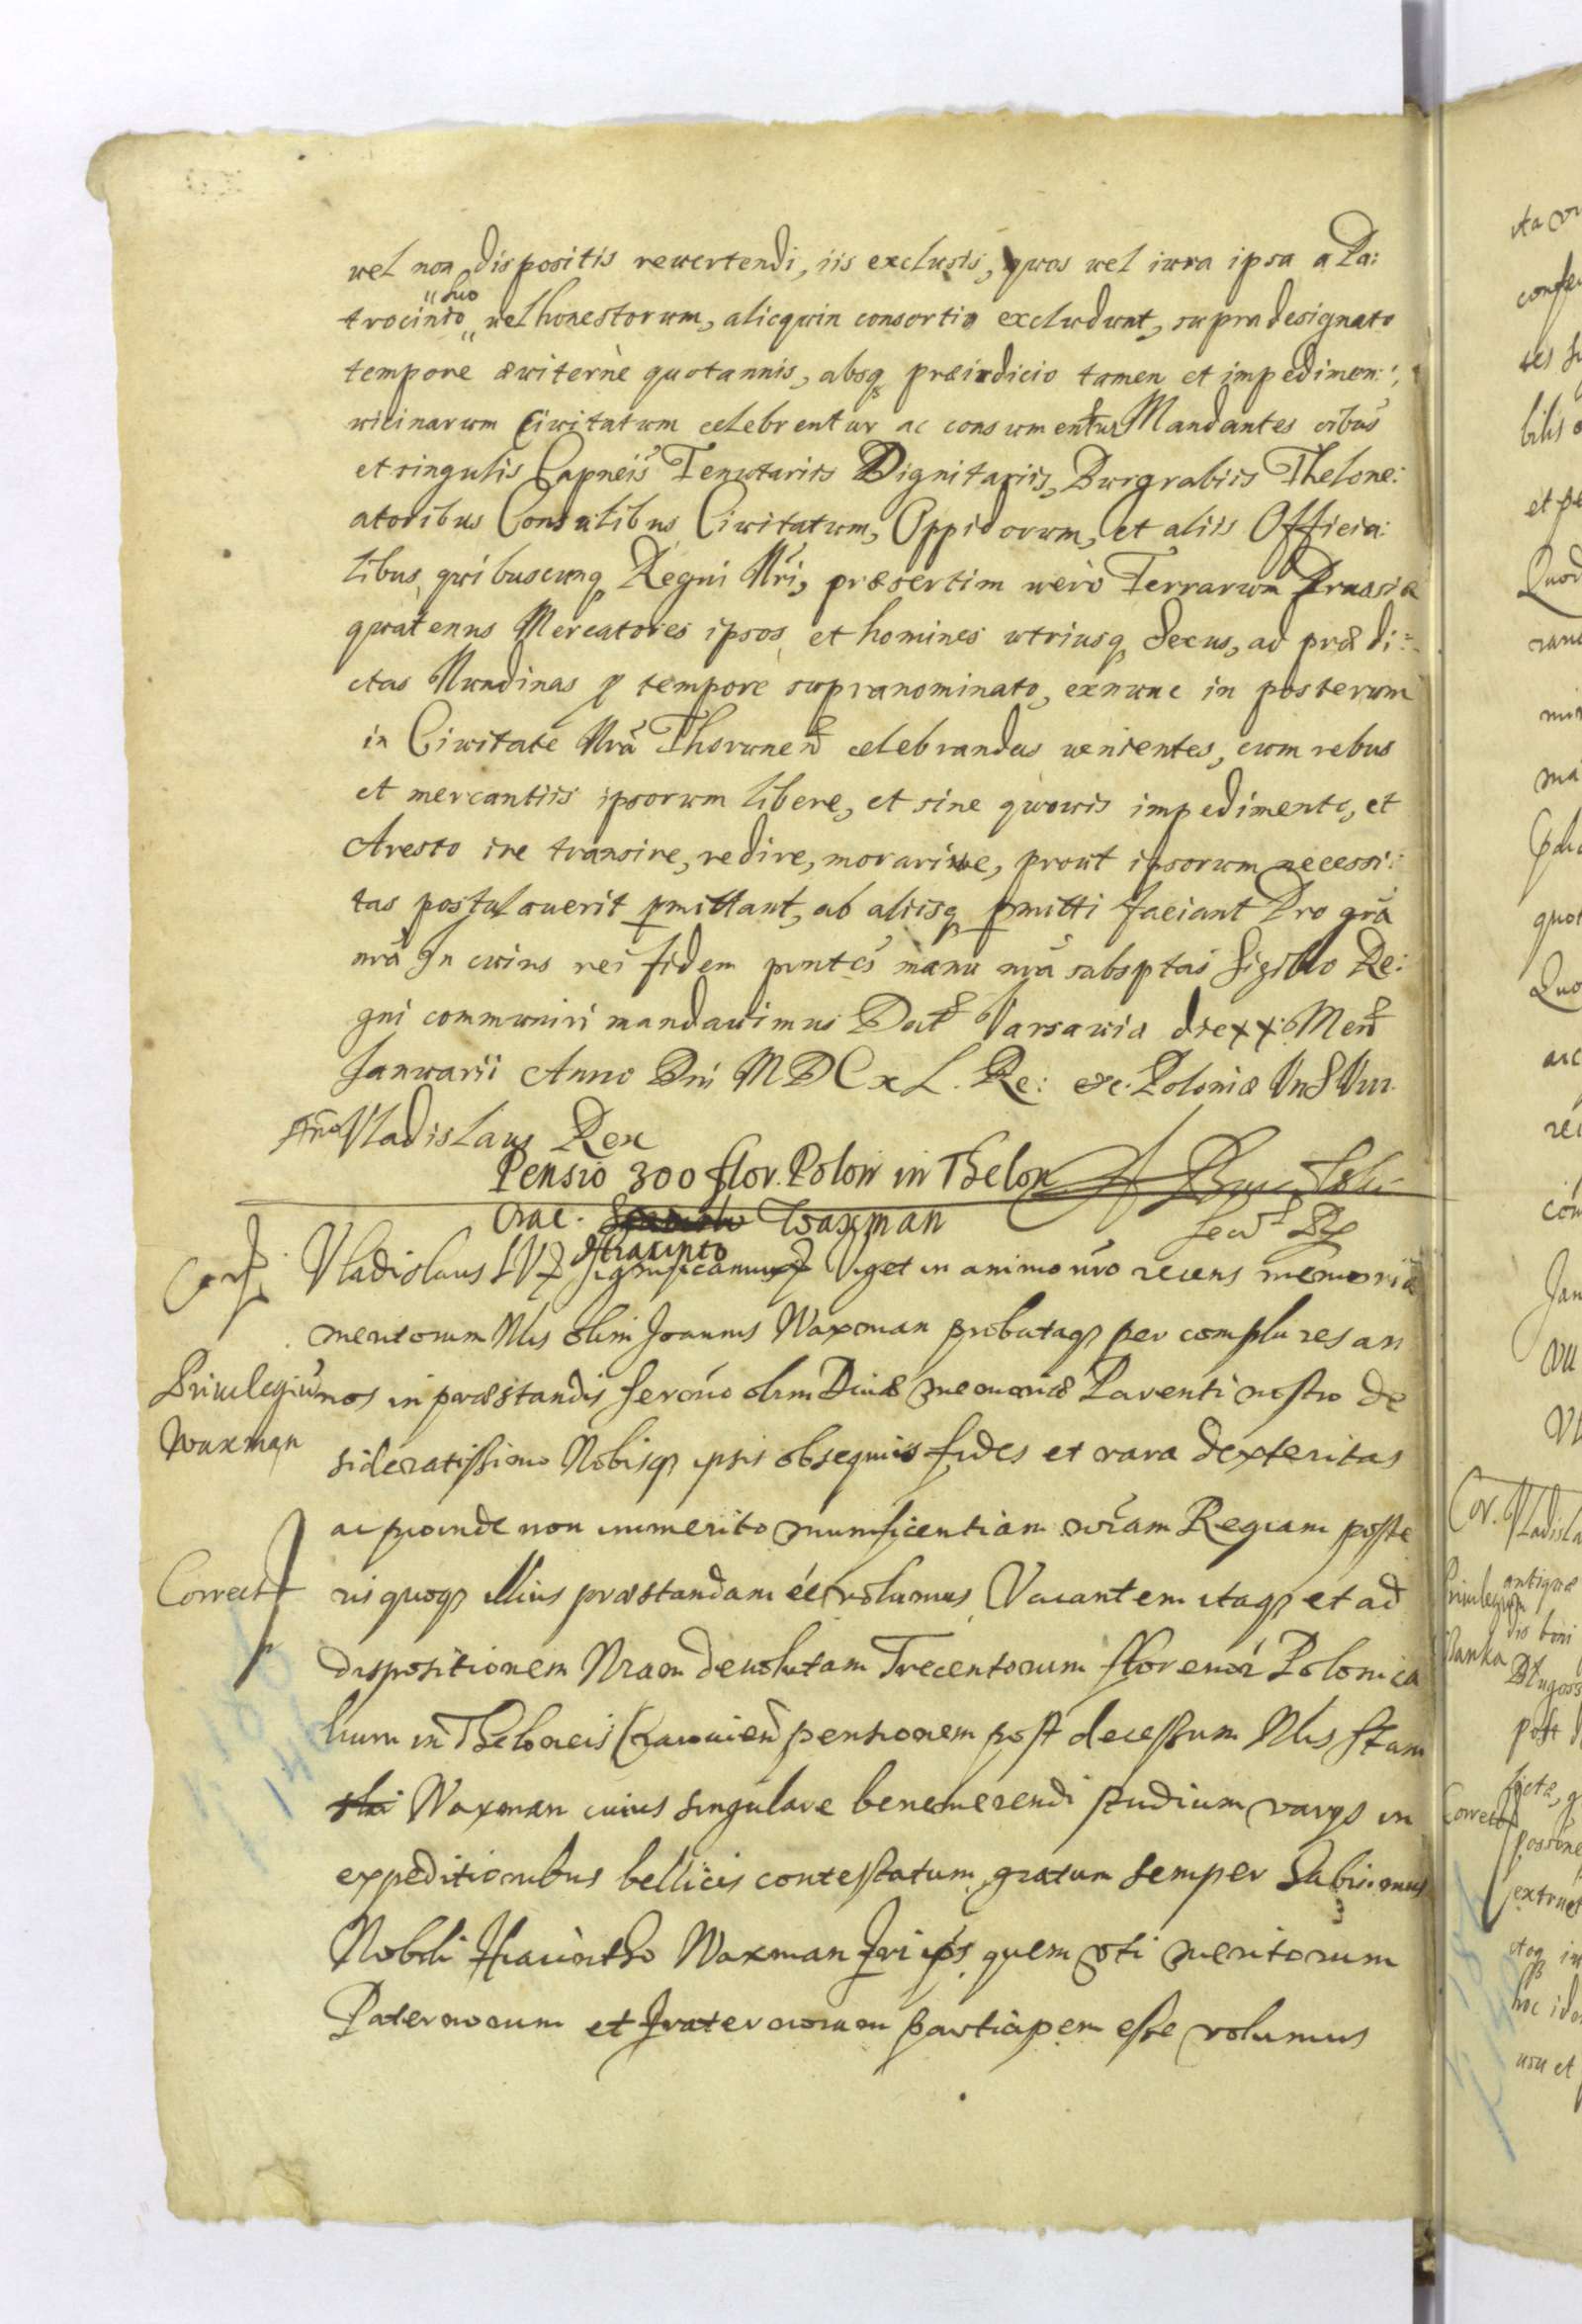 vel non dispositis revertendi, iis exclusis, quos vel iura ipsa a Pa:
trocinio suo vel honestorum, alicquin consortio excludunt, supra designato
tempore æviternè quotannis, absq præiudicio tamen et impedimen:
vicinarum Civitatum celebrentur ac consumentur Mandantes oibus
et singulis Capneis Tenutariis Dignitariis, Burgrabiis Thelone:
atoribus Consulibus Civitatum, Oppidorum, et aliis Officia:
libus quibuscunq Regni Nri, præsertim verò Terrarum Prussiæ
quatenus Mercatores ipsos et homines utriusq Sexus, ad præ di:
ctas Nundinas p tempore supranominato, exnunc in posterum
in Civitate Nrã Thorunen celebrandas venientes, cum rebus
et mercantiis ipsorum libere, et sine quovis impedimento, et
Aresto ire transire, redire, morarive, prout ipsorum necessi:
tas postulaverit pmittant, ab aliisq pmitti faciant Pro grã
nrã In cuius rei fidem pntes manu nrã subsptas Sigillo Re:
gni communiri mandavimus Dat Varsavia die xx Men
Januarii Anno Dni MDCxL. Re: &c. Poloniæ VIII
Vladislaus Rex
Pensio 300 flor. Polon in Thelon
Crac. Hiacinto Waxman
Vladislaus IV Significamus Viget in animo nro recens memoria
meritorum Nlis olim Joannis Waxman probataq per complures an
Privilegiũ nos in præstandis Sereno olim Divæ memoriæ Parenti nostro de
Waxman
sideratissimo Nobisq ipsis obsequiis fides et rara dexteritas
ac proinde non immerito munificentiam nram Regiam poste
Correct
ris quoq illius præstandam ee volumus Vacantem itaq et ad
dispositionem Nram devolutam Trecentorum florenor Polonica
lium in Theloneis Cracovien pensionem post decessum Nlis Stani
slai Waxman cuius singulare benemerendi studium varys in
expeditionibus bellicis contestatum gratum semper habuimus
Nobili Hiacintho Waxman fri ips quem uti meritorum
Paternorum et fraternorum participem esse volumus